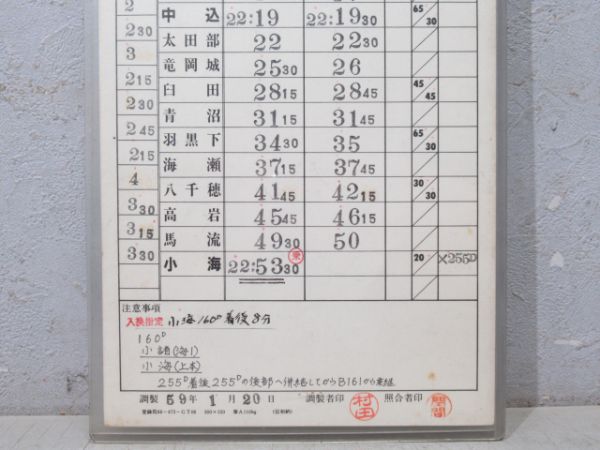 2
中込 22:19 22:19 30 65/30
2 30
太田部 22 22 30
3
竜岡城 25 30 26
2 15
臼田 28 15 28 45 45/45
2 30
青沼 31 15 31 45
2 45
羽黒下 34 30 35 65/30
2 15
海瀬 37 15 37 45
4
八千穂 41 45 42 15 30/30
3 30
高岩 45 45 46 15
3 15
馬流 49 30 50
3 30
小海 22:53 30 20/ ×255D
注意事項
入換指定 小海160D着後8分
160D
小諸(海1)
小海(上本)
255D着後255Dの後部へ併結してから8161から
調製 59年1月20日 調製者印 村王 照合者印